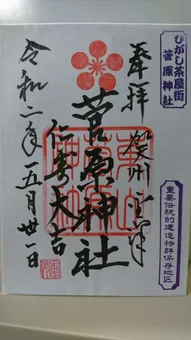 ひがし茶屋街
菅原神社
重要伝統的建造物群保存地区
奉拝
菅原神社
令和二年五月廿一日